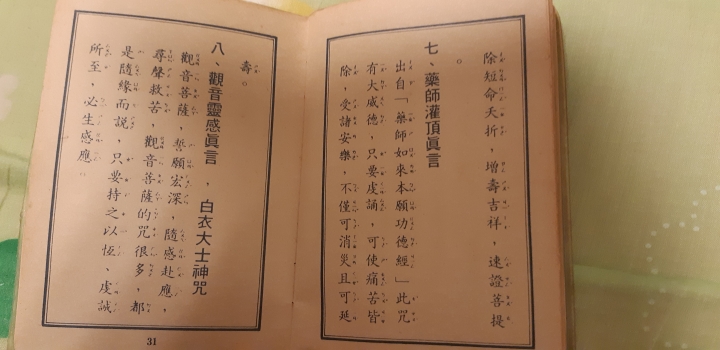 除短命夭折，增壽吉祥，速證菩提
。
七、藥師灌頂眞言
出自「藥師如來本願功德經」此咒
有大威德，只要虔誦，可使痛苦皆
除，受諸安樂，不僅可消災且可延
壽。
八、觀音靈感眞言，白衣大士神咒
觀音菩薩，誓願宏深，隨感赴應，
尋聲救苦，觀音菩薩的咒很多，都
是隨緣而說，只要持之以恆、虔誠
所至，必生感應。
31